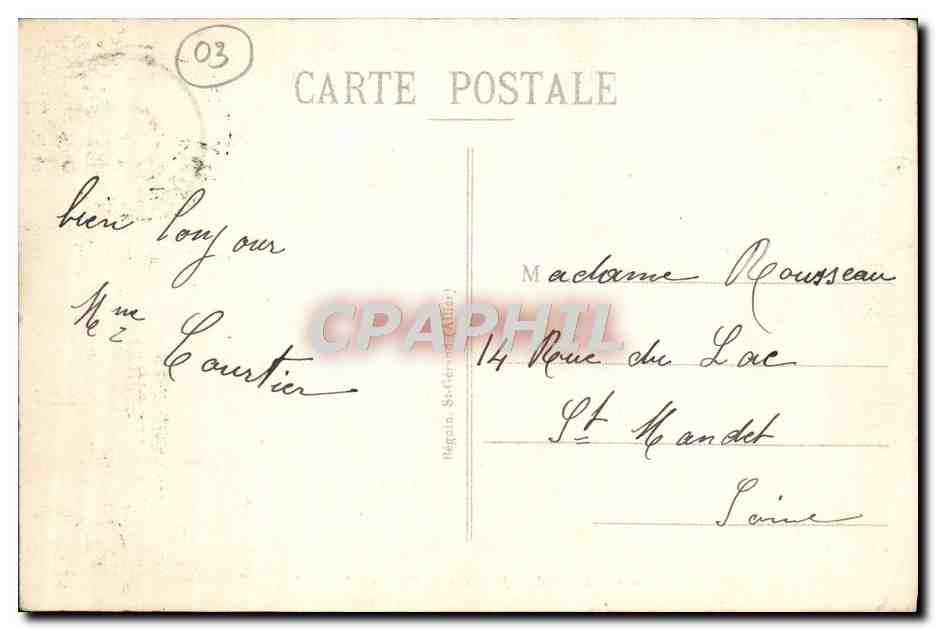 03
CARTE POSTALE
bien bonjour
Mme
Courtier
Madame Rousseau
14 Rue du Lac
St Mandet
Seine
Béguin, St-Gérand (Allier)
CPAPHIL